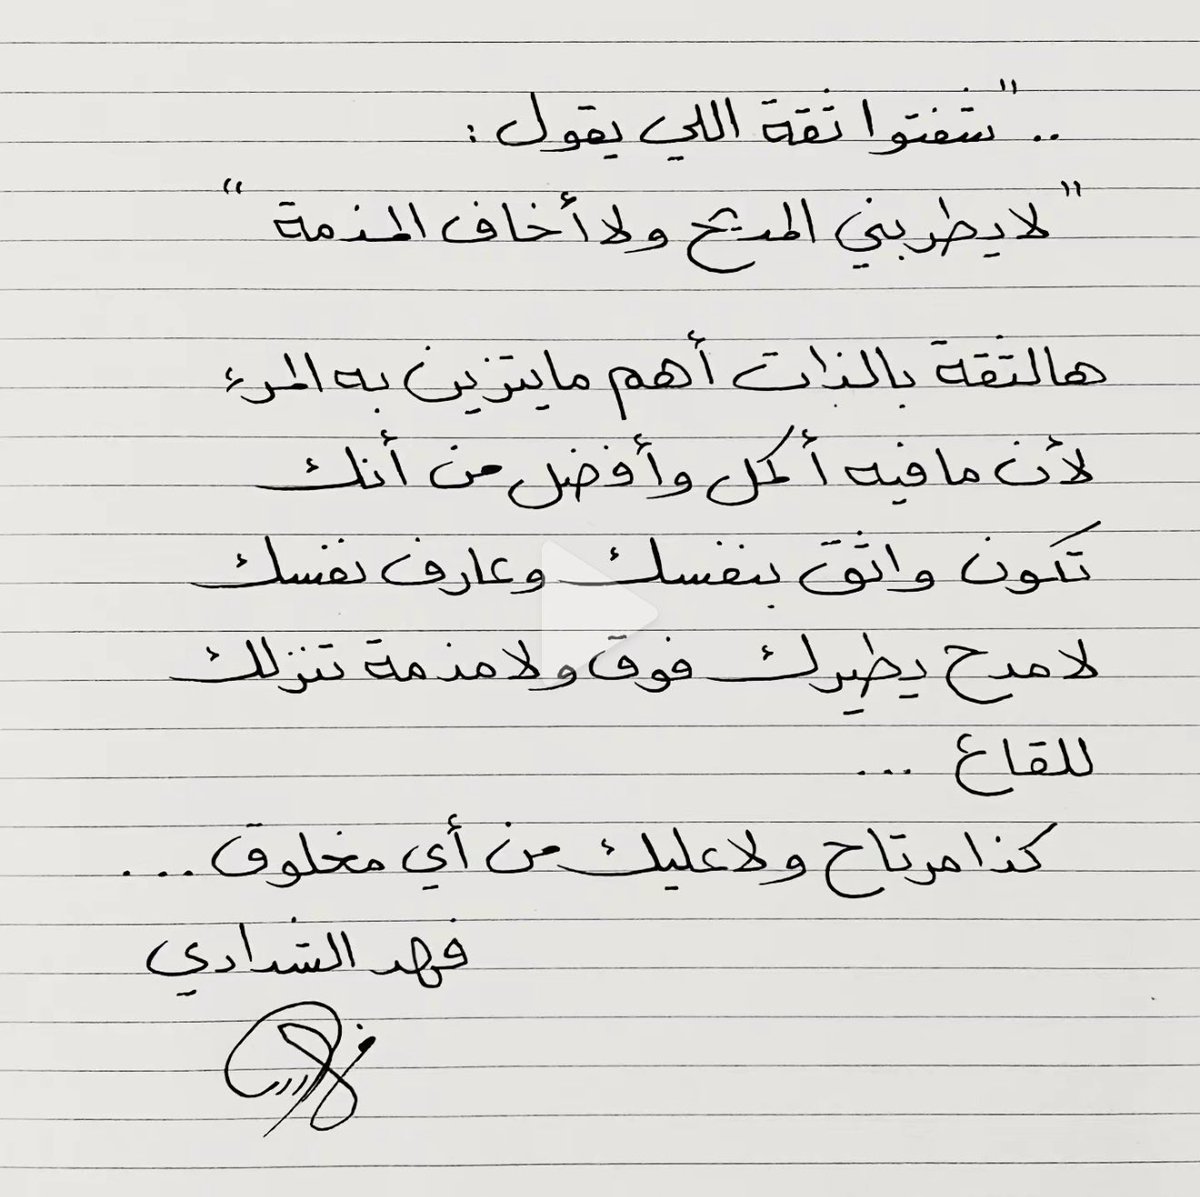 .. "شفتوا ثقة اللي يقول :
"لا يطربني المديح ولا أخاف المذمة"
هالثقة بالذات أهم مايتزين به المرء
لأن مافيه أكمل وأفضل من أنك
تكون واثق بنفسك وعارف نفسك
لا مدح يطيرك فوق ولا مذمة تنزلك
للقاع ...
كذا مرتاح ولا عليك من أي مخلوق ...
فهد الشدادي